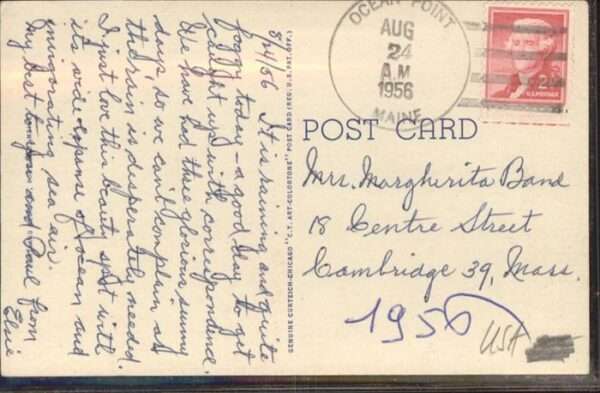 8/24/56 It is raining and quite
foggy today - a good day to get
caught up with correspondence.
We have had three glorious sunny
days, so we can't complain as
the rain is desperately needed.
I just love this beauty spot with
its wide expense of ocean and
invigorating sea air.
My best to you and Paul from
Elsie
GENUINE CURTEICH-CHICAGO "C.T. ART-COLORTONE" POST CARD (REG. U.S. PAT. OFF.)
OCEAN POINT
AUG
24
A.M
1956
MAINE
2¢
U.S. POSTAGE
POST CARD
Mrs. Margherita Band
18 Centre Street
Cambridge 39, Mass.
1956
USA